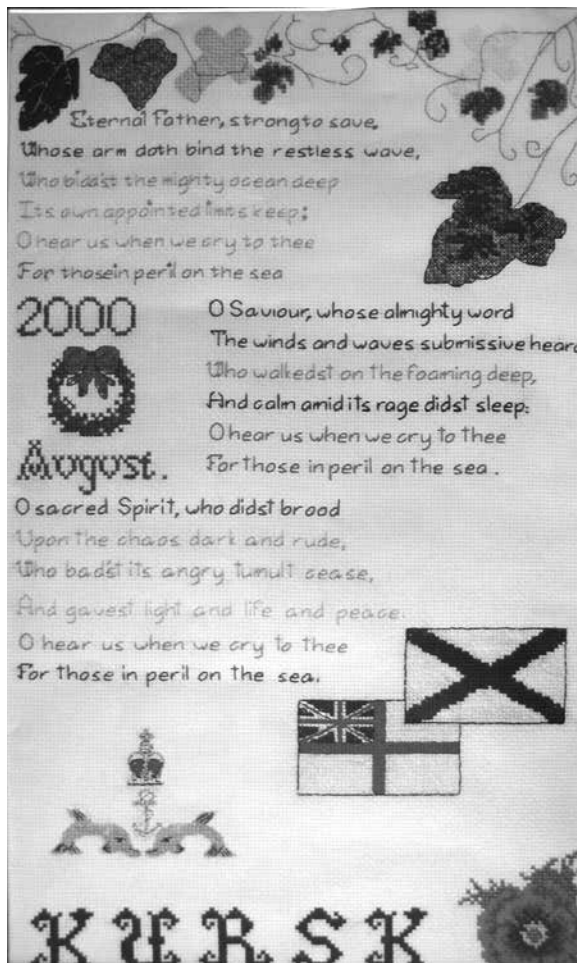 Eternal Father, strong to save,
Whose arm doth bind the restless wave,
Who bidd'st the mighty ocean deep
Its own appointed limits keep;
O hear us when we cry to thee
For those in peril on the sea
2000
August.
O Saviour, whose almighty word
The winds and waves submissive heard
Who walkedst on the foaming deep,
And calm amid its rage didst sleep:
O hear us when we cry to thee
For those in peril on the sea.
O sacred Spirit, who didst brood
Upon the chaos dark and rude,
Who bad'st its angry tumult cease,
And gavest light and life and peace.
O hear us when we cry to thee
For those in peril on the sea.
KURSK